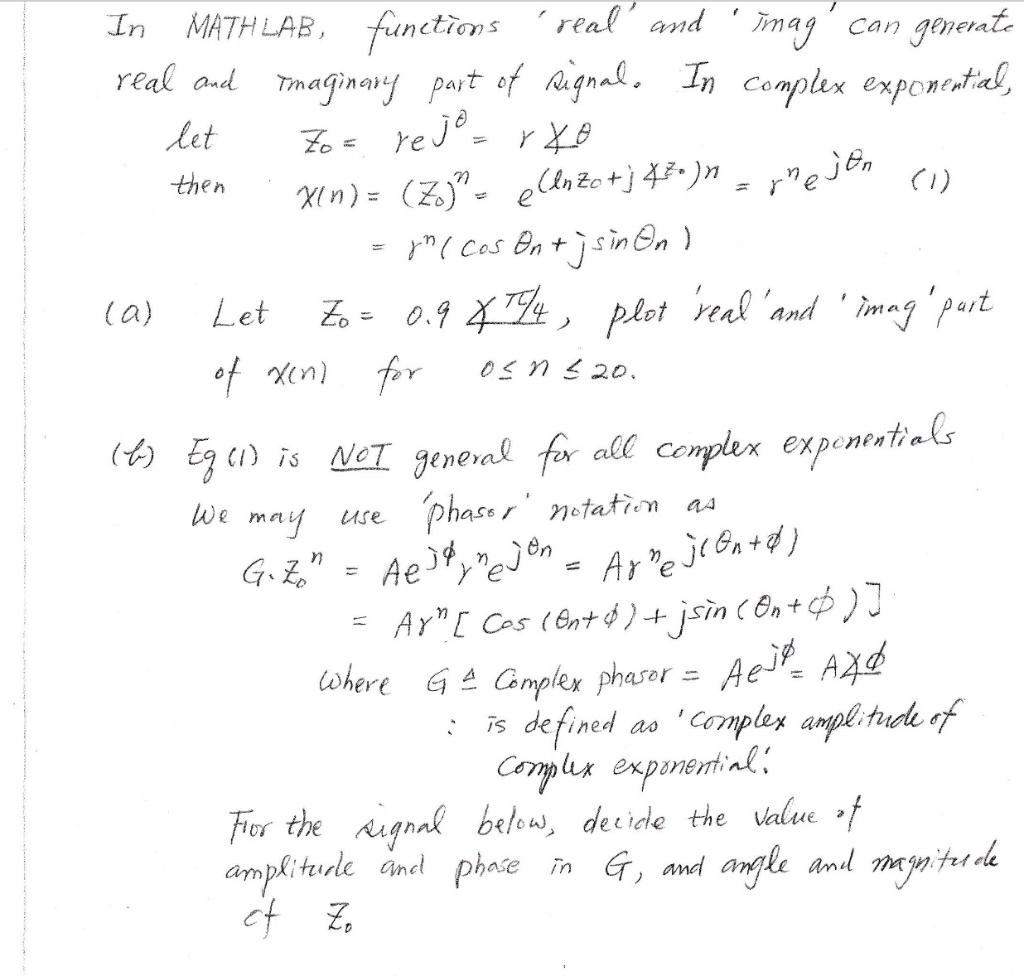 In MATHLAB, functions 'real' and 'imag' can generate
real and imaginary part of signal. In complex exponential,
let Z₀ = re^jθ = r∡θ
then x(n) = (Z₀)ⁿ = e^(lnz₀+j∡z₀)n = rⁿe^jθn (1)
= rⁿ(cos θn + j sin θn)
(a) Let Z₀ = 0.9 ∡π/4, plot 'real' and 'imag' part
of x(n) for 0≤n≤20.
(b) Eq(1) is NOT general for all complex exponentials
We may use 'phasor' notation as
G·Z₀ⁿ = Ae^jϕ rⁿe^jθn = Arⁿe^j(θn+ϕ)
= Arⁿ[Cos(θn+ϕ)+jsin(θn+ϕ)]
Where G ≜ Complex phasor = Ae^jϕ = A∡ϕ
: is defined as 'complex amplitude of
Complex exponential'.
For the signal below, decide the value of
amplitude and phase in G, and angle and magnitude
of Z₀